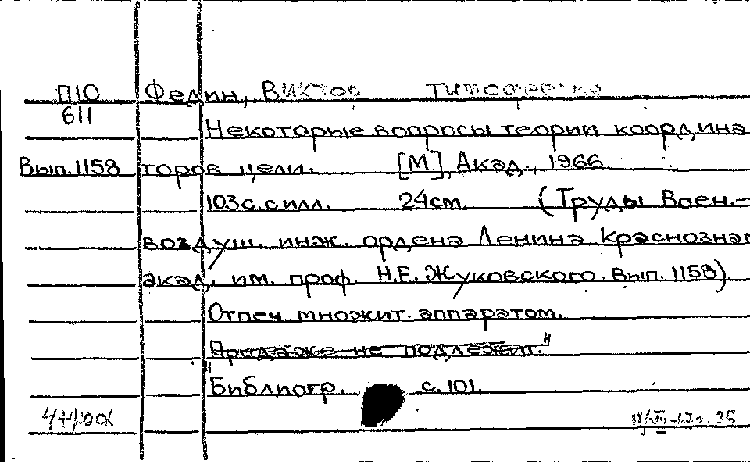 П10 Федин, Виктор Тимофеевич
611
Некоторые вопросы теории координа
Вып. 1158 торов цели. [М], Акад., 1966.
103 с. с илл. 24 см. (Труды Воен.-
воздуш. инж. ордена Ленина Краснознам
акад. им. проф. Н.Е. Жуковского. Вып. 1158).
Отпеч. множит. аппаратом.
"Продаже не подлежит."
"Библиогр. с. 101.